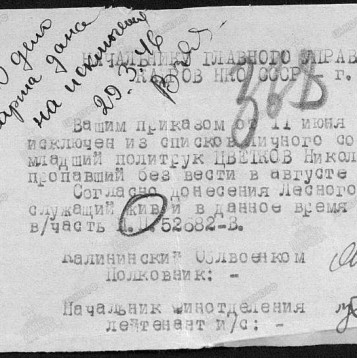 дело
дана
на исключение
29.3.46
НАЧАЛЬНИКУ ГЛАВНОГО УПРАВ
КАДРОВ НКО СССР - г.
Вашим приказом от 11 июня
исключен из списков личного со
младший политрук ЦВЕТКОВ Никол
пропавший без вести в августе
Согласно донесения Лесного
служащий жив и в данное время
в/часть П.П. 52682-В.
Калининский Облвоенком
Полковник: -
Начальник отделения
лейтенант и/с: -